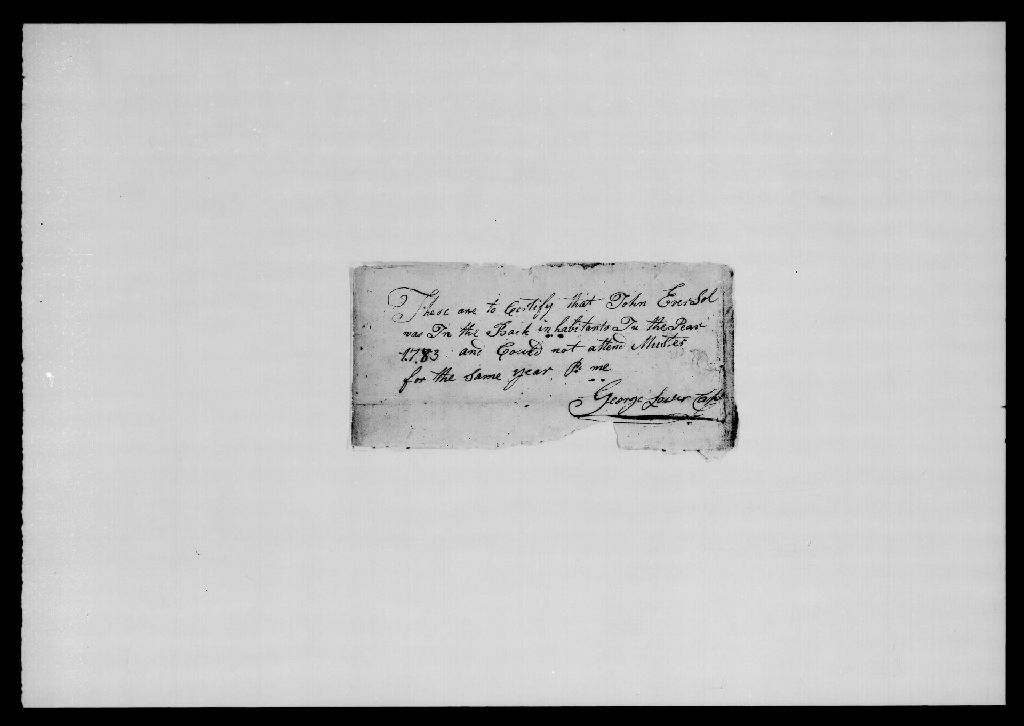 These are to Certify that John EverSol
was In the Back inhabitants In the Year
1783 and Could not attend Muster
for the same year Pr me
George Lower Capt